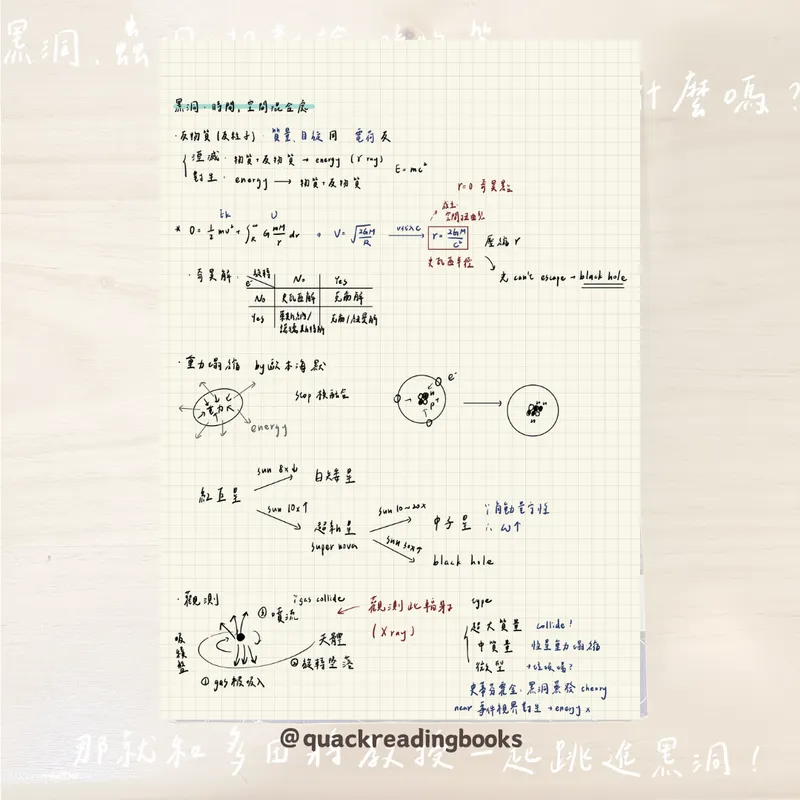 黑洞、蟲洞
什麼嗎?
黑洞·時間,空間混合處
·反物質(反粒子) 質量,自旋同 電荷反
湮滅·物質+反物質→energy (γ ray)
對生·energy→物質+反物質
E=mc²
r=0 奇異點
Ek U
空間扭曲
* 0=½mv²+∫R∞ G mM/r dr → V=√2GM/R v以c → r=2GM/c² 壓縮r
史瓦西半徑
光can't escape→black hole
·奇異解·旋轉 No Yes
e⁻
No 史瓦西解 克爾解
Yes
·重力塌縮 by歐本海默
重力 stop 核融合 e⁻
n
p⁺
energy
n
n
紅巨星
sun 8x↓
白矮星
sun 10x↑
超新星
super nova
sun 10~20x
中子星
∵角動量守恆
∴ω↑
sun 30x↑
black hole
·觀測
gas collide
觀測此輻射
(X ray)
③噴流
吸積盤
天體
②旋轉墜落
①gas被吸入
type
超大質量 collide!
中質量 恆星重力塌縮
微型
史蒂芬霍金·黑洞蒸發 theory
near 事件視界對生→energy x
@quackreadingbooks
那就和多田將教授一起跳進黑洞!